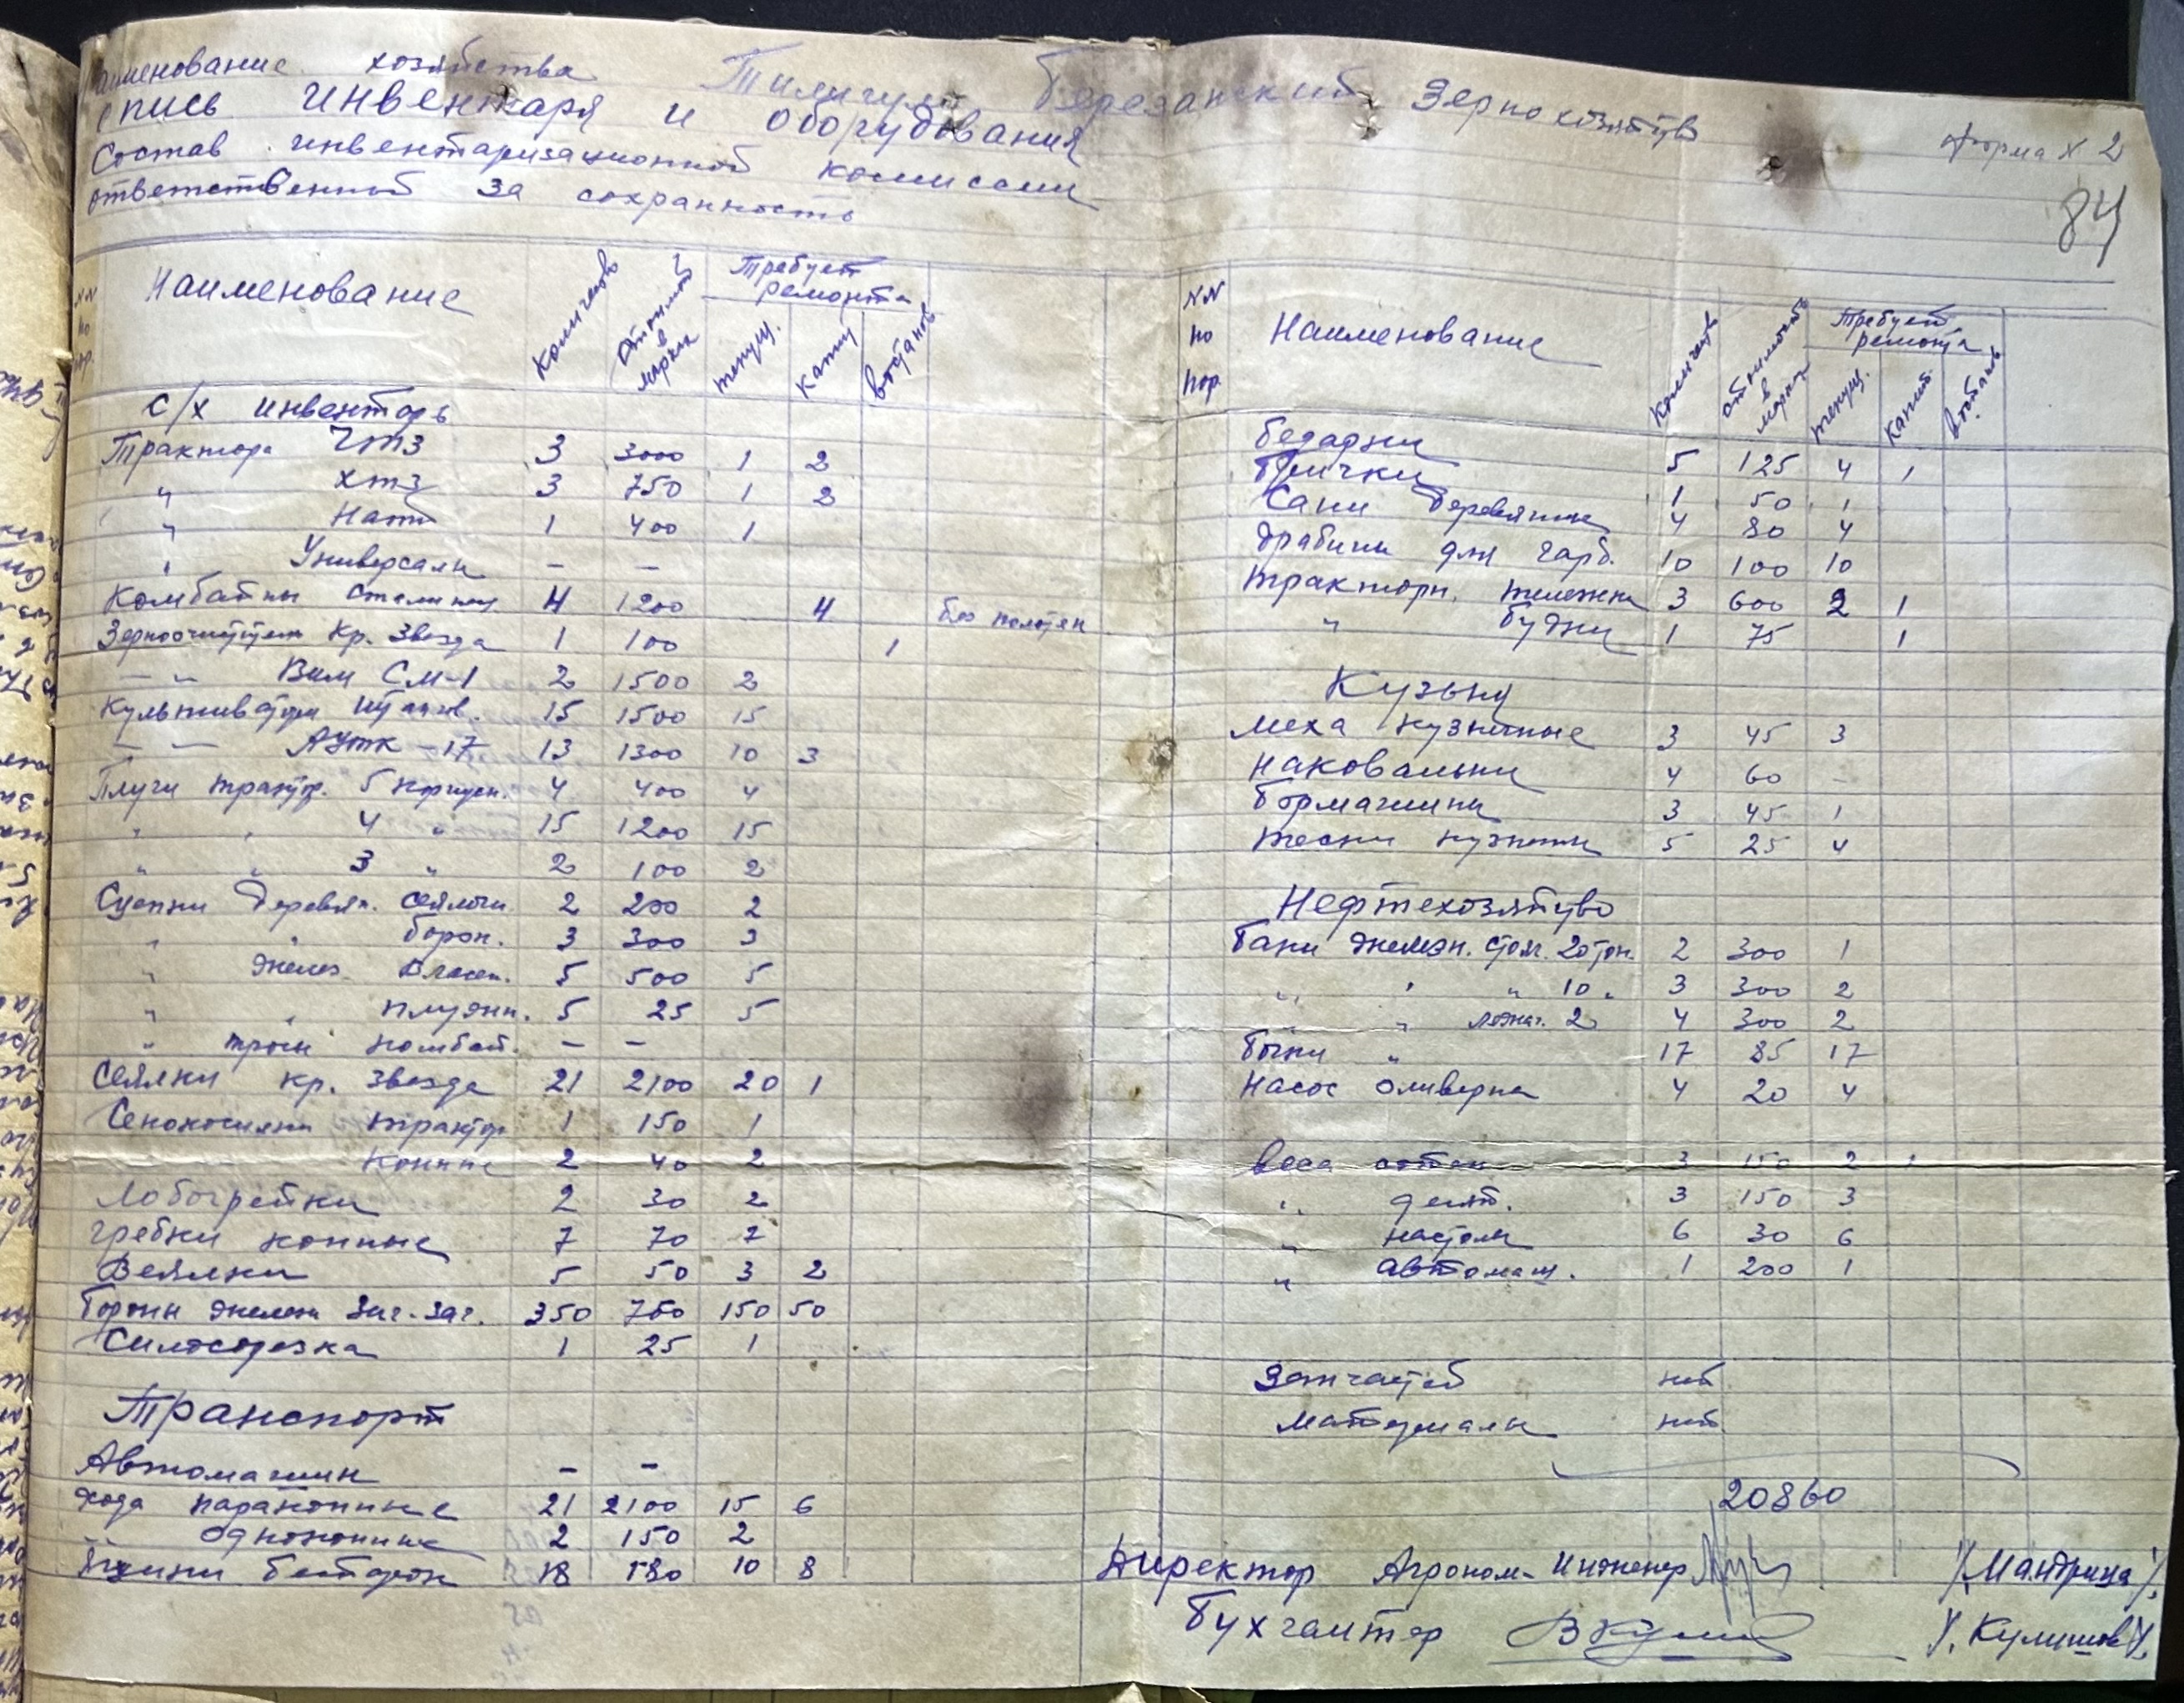 Наименование хозяйства Тилигуло Березанский Зернохозяйство
Опись инвентаря и оборудования
форма N 2
Состав инвентаризационной комиссии
84
ответственной за сохранность
NN по пор. Наименование Количество Стоимость в марках Требует ремонта текущ. капит. востанов.
с/х инвентарь
Трактора ЧТЗ 3 3000 1 2
" ХТЗ 3 750 1 2
" Нати 1 400 1
" Универсали – –
Комбайны Сталинец 4 1200 4 без полотен
Зерноочистители Кр. Звезда 1 100 1
– " – Вим СМ-1 2 1500 2
Культиваторы Штанов. 15 1500 15
– " – АУТК-17 13 1300 10 3
Плуги трактор. 5 корпусн. 4 400 4
" " 4 " 15 1200 15
" " 3 " 2 100 2
Сцепки деревян. сеялочн. 2 200 2
" " борон. 3 300 3
" желез. 5 500 5
" " плужн. 5 25 5
" комбай. – –
Сеялки кр. звезда 21 2100 20 1
Сенокосилки трактор. 1 150 1
конные 2 40 2
Лобогрейки 2 30 2
Гребки конные 7 70 7
Веялки 5 50 3 2
Бороны железн Зиг-заг. 350 750 150 50
Силосорезка 1 25 1
Транспорт
Автомашин – –
Хода пароконные 21 2100 15 6
" одноконные 2 150 2
18 580 10 8
NN по пор. Наименование Количеств стоимость в марках Требует ремонта текущ. капит. востанов.
Бедарки 5 125 4 1
Брички 1 50 1
Сани деревянные 4 80 4
Драбины для гарб. 10 100 10
Трактори. тележки 3 600 2 1
" будки 1 75 1
Кузьня
Меха кузнечные 3 45 3
Наковальни 4 60 –
Бормашины 3 45 1
тески кузнечн 5 25 4
Нефтехозяйство
Баки железн. 20 тон. 2 300 1
" " " 10 " 3 300 2
" " 2 4 300 2
Бочки " 17 85 17
Насос оливерна 4 20 4
Веса сотен 3 150 2 1
" десят. 3 150 3
" настольн 6 30 6
" автомаш. 1 200 1
Запчастей нет
Материалы нет
20860
Директор Агроном-Инженер /Мандрица/.
Бухгалтер /Кулишов/.